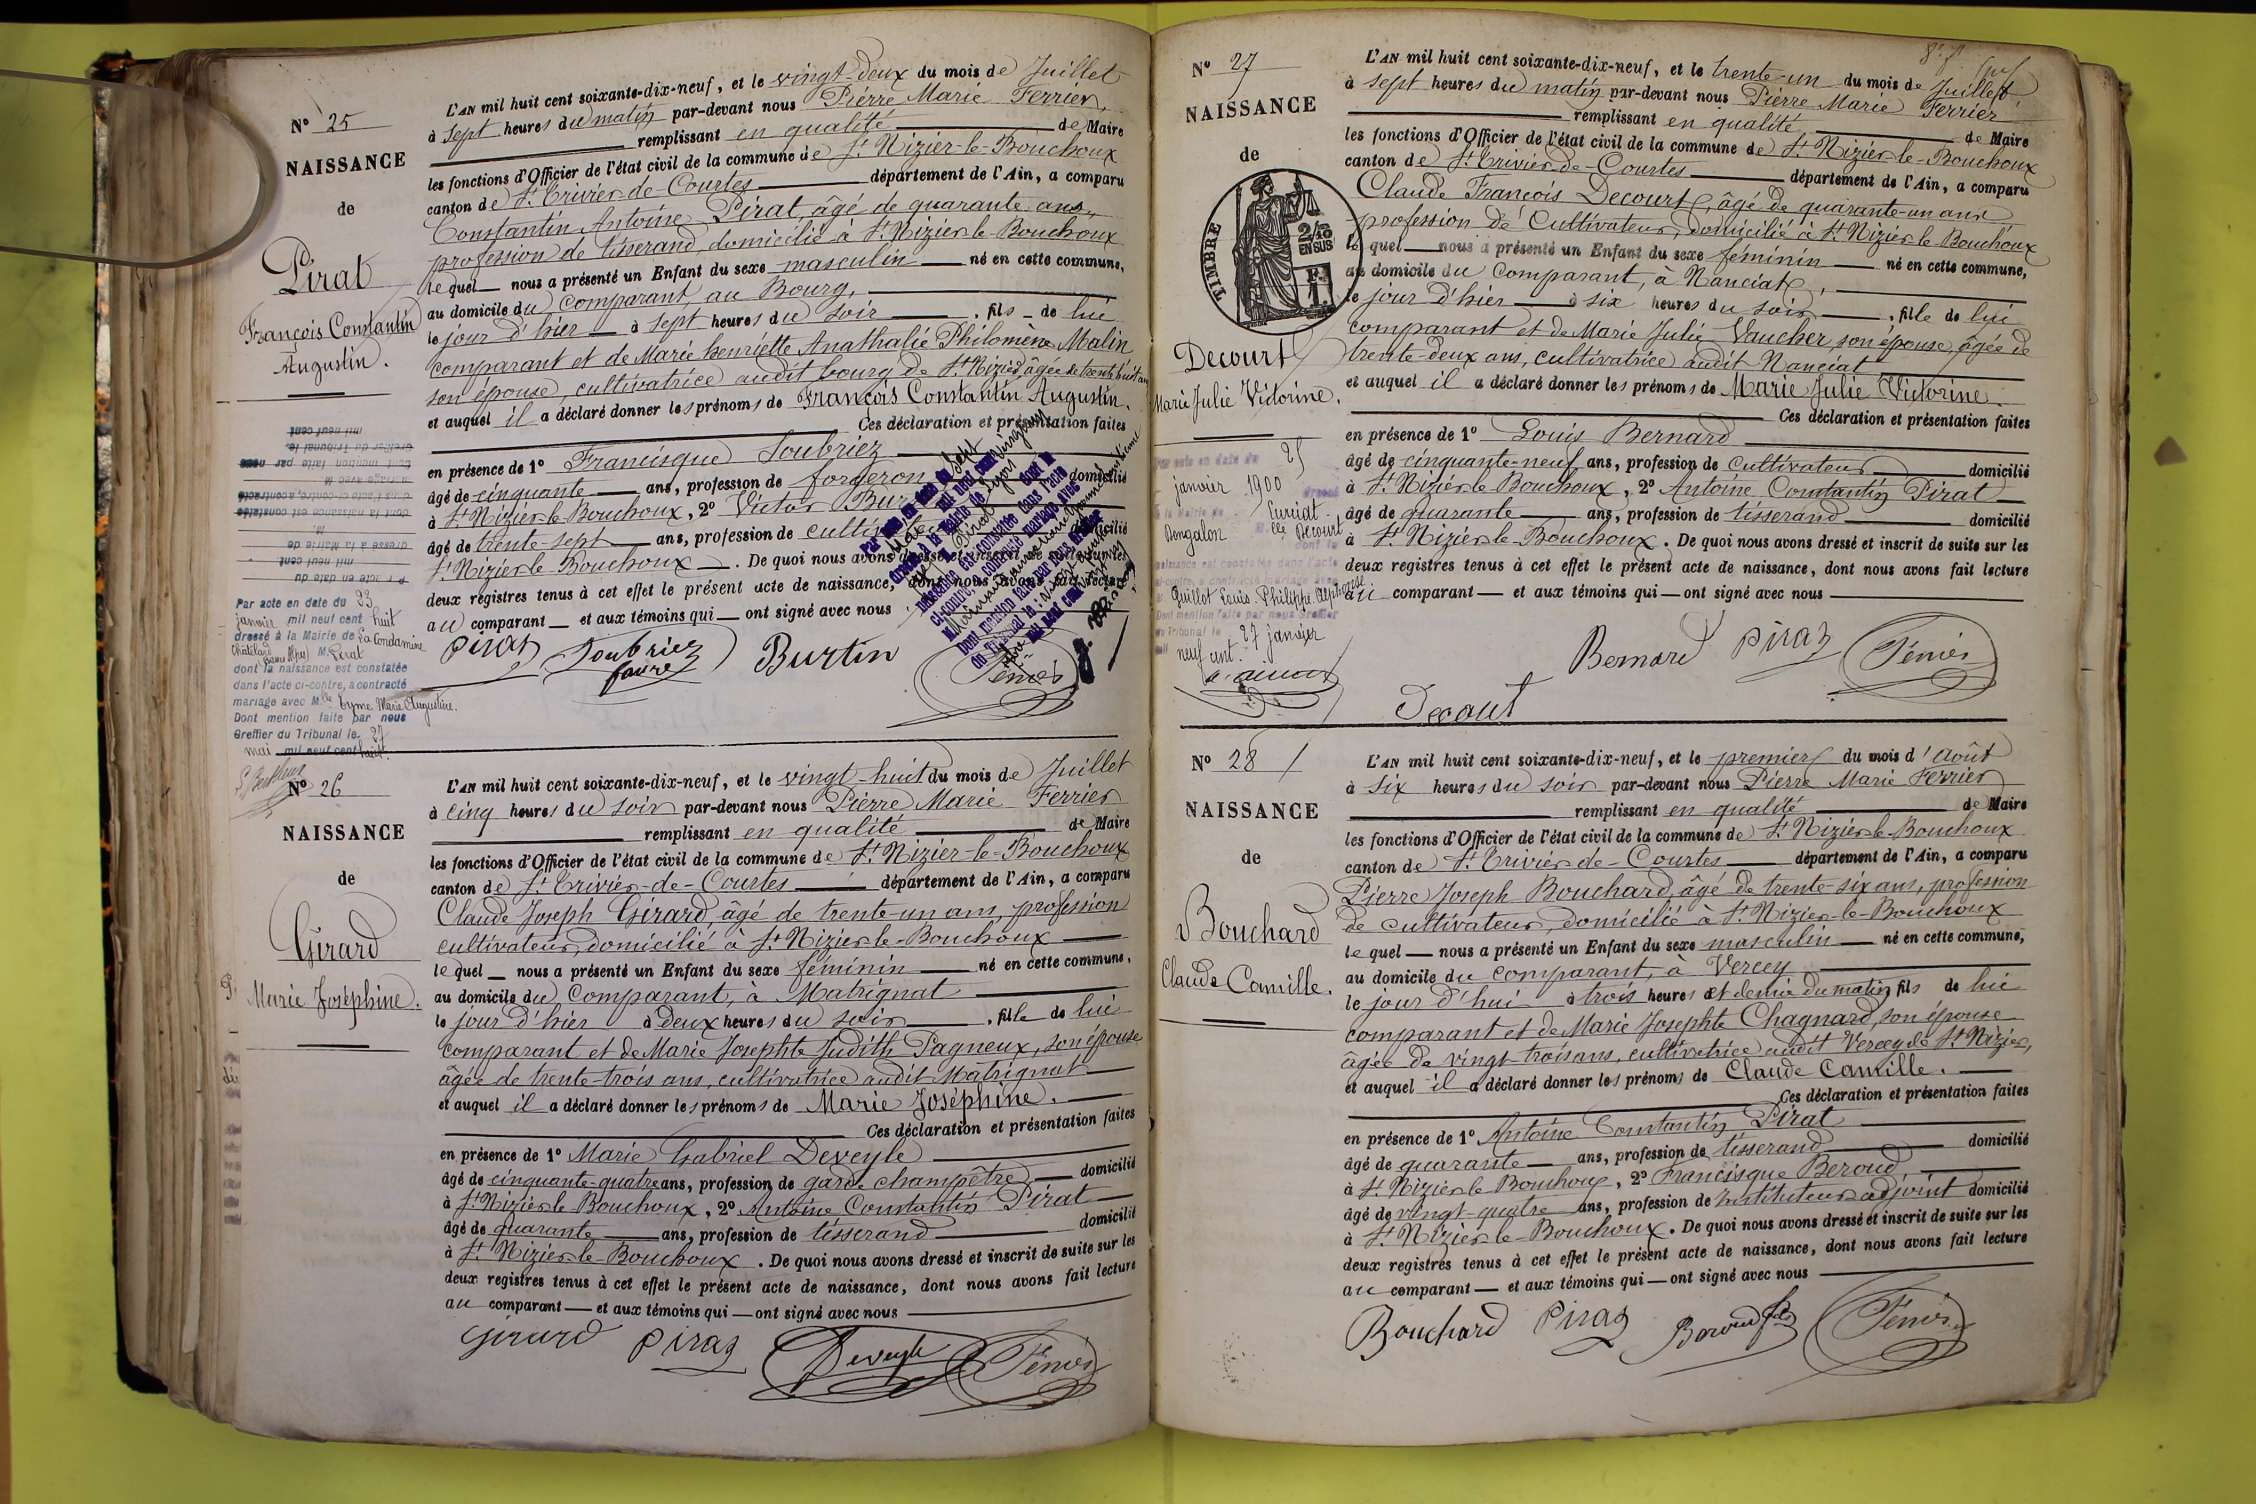 N° 25
NAISSANCE
de
Pirat
François Constantin
Augustin.
Par acte en date du 23
janvier mil neuf cent huit
dressé à la Mairie de La Condamine
Châtelard (Basses Alpes) M. Pirat
dont la naissance est constatée
dans l'acte ci-contre, a contracté
mariage avec Mlle Eyme Marie Augustine.
Dont mention faite par nous
Greffier du Tribunal le 27
mai mil neuf cent huit.
L'AN mil huit cent soixante-dix-neuf, et le vingt-deux du mois de Juillet
à sept heures du matin par-devant nous Pierre Marie Ferrier,
remplissant en qualité de Maire
les fonctions d'Officier de l'état civil de la commune de St Nizier-le-Bouchoux
canton de St Trivier-de-Courtes département de l'Ain, a comparu
Constantin Antoine Pirat, âgé de quarante ans,
profession de tisserand, domicilié à St Nizier-le-Bouchoux
lequel nous a présenté un Enfant du sexe masculin né en cette commune,
au domicile du comparant, au Bourg,
le jour d'hier à sept heures du soir, fils de lui
comparant et de Marie henriette Anathalie Philomène Malin
son épouse, cultivatrice audit bourg de St Nizier, âgée de trente huit ans
et auquel il a déclaré donner les prénoms de François Constantin Augustin.
Ces déclaration et présentation faites
en présence de 1° Francisque Soubriez
âgé de cinquante ans, profession de forgeron domicilié
à St Nizier-le-Bouchoux, 2° Victor Bur
âgé de trente-sept ans, profession de cultiv domicilié
St Nizier-le-Bouchoux. De quoi nous avons
deux registres tenus à cet effet le présent acte de naissance,
au comparant et aux témoins qui ont signé avec nous
Pirat Soubriez Burtin Férier
faure
N° 26
NAISSANCE
de
Girard
Marie Joséphine.
L'AN mil huit cent soixante-dix-neuf, et le vingt-huit du mois de Juillet
à cinq heures du soir par-devant nous Pierre Marie Ferrier
remplissant en qualité de Maire
les fonctions d'Officier de l'état civil de la commune de St Nizier-le-Bouchoux
canton de St Trivier-de-Courtes département de l'Ain, a comparu
Claude Joseph Girard, âgé de trente-un ans, profession
cultivateur, domicilié à St Nizier-le-Bouchoux
lequel nous a présenté un Enfant du sexe féminin né en cette commune,
au domicile du comparant, à Matrignat
le jour d'hier à deux heures du soir, fille de lui
comparant et de Marie Josephte Judith Pagneux, son épouse
âgée de trente-trois ans, cultivatrice audit Matrignat
et auquel il a déclaré donner les prénoms de Marie Joséphine.
Ces déclaration et présentation faites
en présence de 1° Marie Gabriel Deveyle
âgé de cinquante-quatre ans, profession de garde champêtre domicilié
à St Nizier-le-Bouchoux, 2° Antoine Constantin Pirat
âgé de quarante ans, profession de tisserand domicilié
à St Nizier-le-Bouchoux. De quoi nous avons dressé et inscrit de suite sur les
deux registres tenus à cet effet le présent acte de naissance, dont nous avons fait lecture
au comparant et aux témoins qui ont signé avec nous
Girard Pirat Deveyle Férier
N° 27
NAISSANCE
de
TIMBRE
2/10
EN SUS
Decourt
Marie Julie Victorine.
25
janvier 1900
Curciat-
Dongalon Mlle Décourt
Guillot Louis Philippe Alphonse
27 janvier
neuf cent
L'AN mil huit cent soixante-dix-neuf, et le trente-un du mois de Juillet
à sept heures du matin par-devant nous Pierre Marie Ferrier
remplissant en qualité de Maire
les fonctions d'Officier de l'état civil de la commune de St Nizier-le-Bouchoux
canton de St Trivier-de-Courtes département de l'Ain, a comparu
Claude François Decourt, âgé de quarante-un ans
profession de Cultivateur, domicilié à St Nizier-le-Bouchoux
lequel nous a présenté un Enfant du sexe féminin né en cette commune,
au domicile du comparant, à Nanciat,
le jour d'hier à six heures du soir, fille de lui
comparant et de Marie Julie Vaucher, son épouse, âgée de
trente-deux ans, cultivatrice audit Nanciat
et auquel il a déclaré donner les prénoms de Marie Julie Victorine.
Ces déclaration et présentation faites
en présence de 1° Louis Bernard
âgé de cinquante-neuf ans, profession de cultivateur domicilié
à St Nizier-le-Bouchoux, 2° Antoine Constantin Pirat
âgé de quarante ans, profession de tisserand domicilié
à St Nizier-le-Bouchoux. De quoi nous avons dressé et inscrit de suite sur les
deux registres tenus à cet effet le présent acte de naissance, dont nous avons fait lecture
au comparant et aux témoins qui ont signé avec nous
Bernard Pirat Férier
Decourt
N° 28
NAISSANCE
de
Bouchard
Claude Camille.
L'AN mil huit cent soixante-dix-neuf, et le premier du mois d'Août
à six heures du soir par-devant nous Pierre Marie Ferrier
remplissant en qualité de Maire
les fonctions d'Officier de l'état civil de la commune de St Nizier-le-Bouchoux
canton de St Trivier-de-Courtes département de l'Ain, a comparu
Pierre Joseph Bouchard, âgé de trente-six ans, profession
de cultivateur, domicilié à St Nizier-le-Bouchoux
lequel nous a présenté un Enfant du sexe masculin né en cette commune,
au domicile du comparant, à Vercey
le jour d'hui à trois heures et demie du matin fils de lui
comparant et de Marie Josephte Chagnard, son épouse
âgée de vingt-trois ans, cultivatrice audit Vercey de St Nizier,
et auquel il a déclaré donner les prénoms de Claude Camille.
Ces déclaration et présentation faites
en présence de 1° Antoine Constantin Pirat
âgé de quarante ans, profession de tisserand domicilié
à St Nizier-le-Bouchoux, 2° Francisque Beroud,
âgé de vingt-quatre ans, profession de Instituteur adjoint domicilié
à St Nizier-le-Bouchoux. De quoi nous avons dressé et inscrit de suite sur les
deux registres tenus à cet effet le présent acte de naissance, dont nous avons fait lecture
au comparant et aux témoins qui ont signé avec nous
Bouchard Pirat Beroud fils Férier